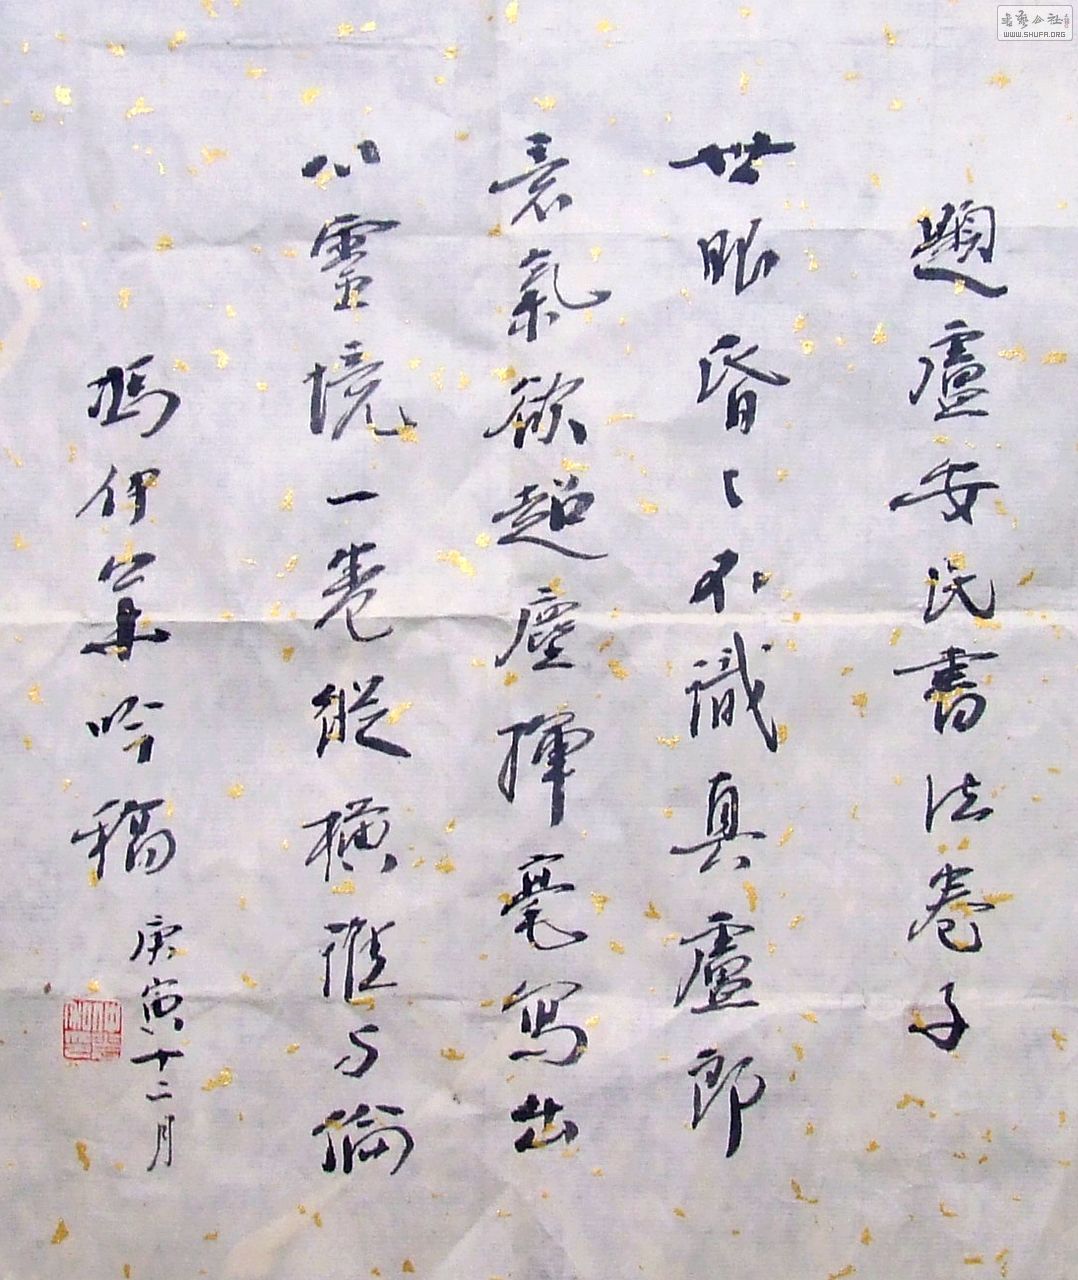 題盧安民書法卷子
世眼昏〻不識真盧郎
意氣欲超塵揮毫寫出
心靈境一卷縱橫誰与倫
馮伊 吟稿
庚寅十二月
书艺公社
WWW.SHUFA.ORG